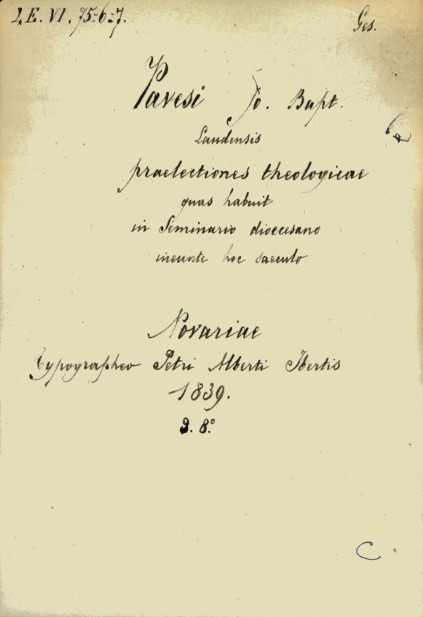 4E. VI. 75-6-7.
Ges.
Pavesi Jo. Bapt.
Laudensis
praelectiones theologicae
quas habuit
in Seminario dioecesano
ineunte hoc saeculo
Novariae
Typographeo Petri Alberti Ibertis
1839.
8.°
C